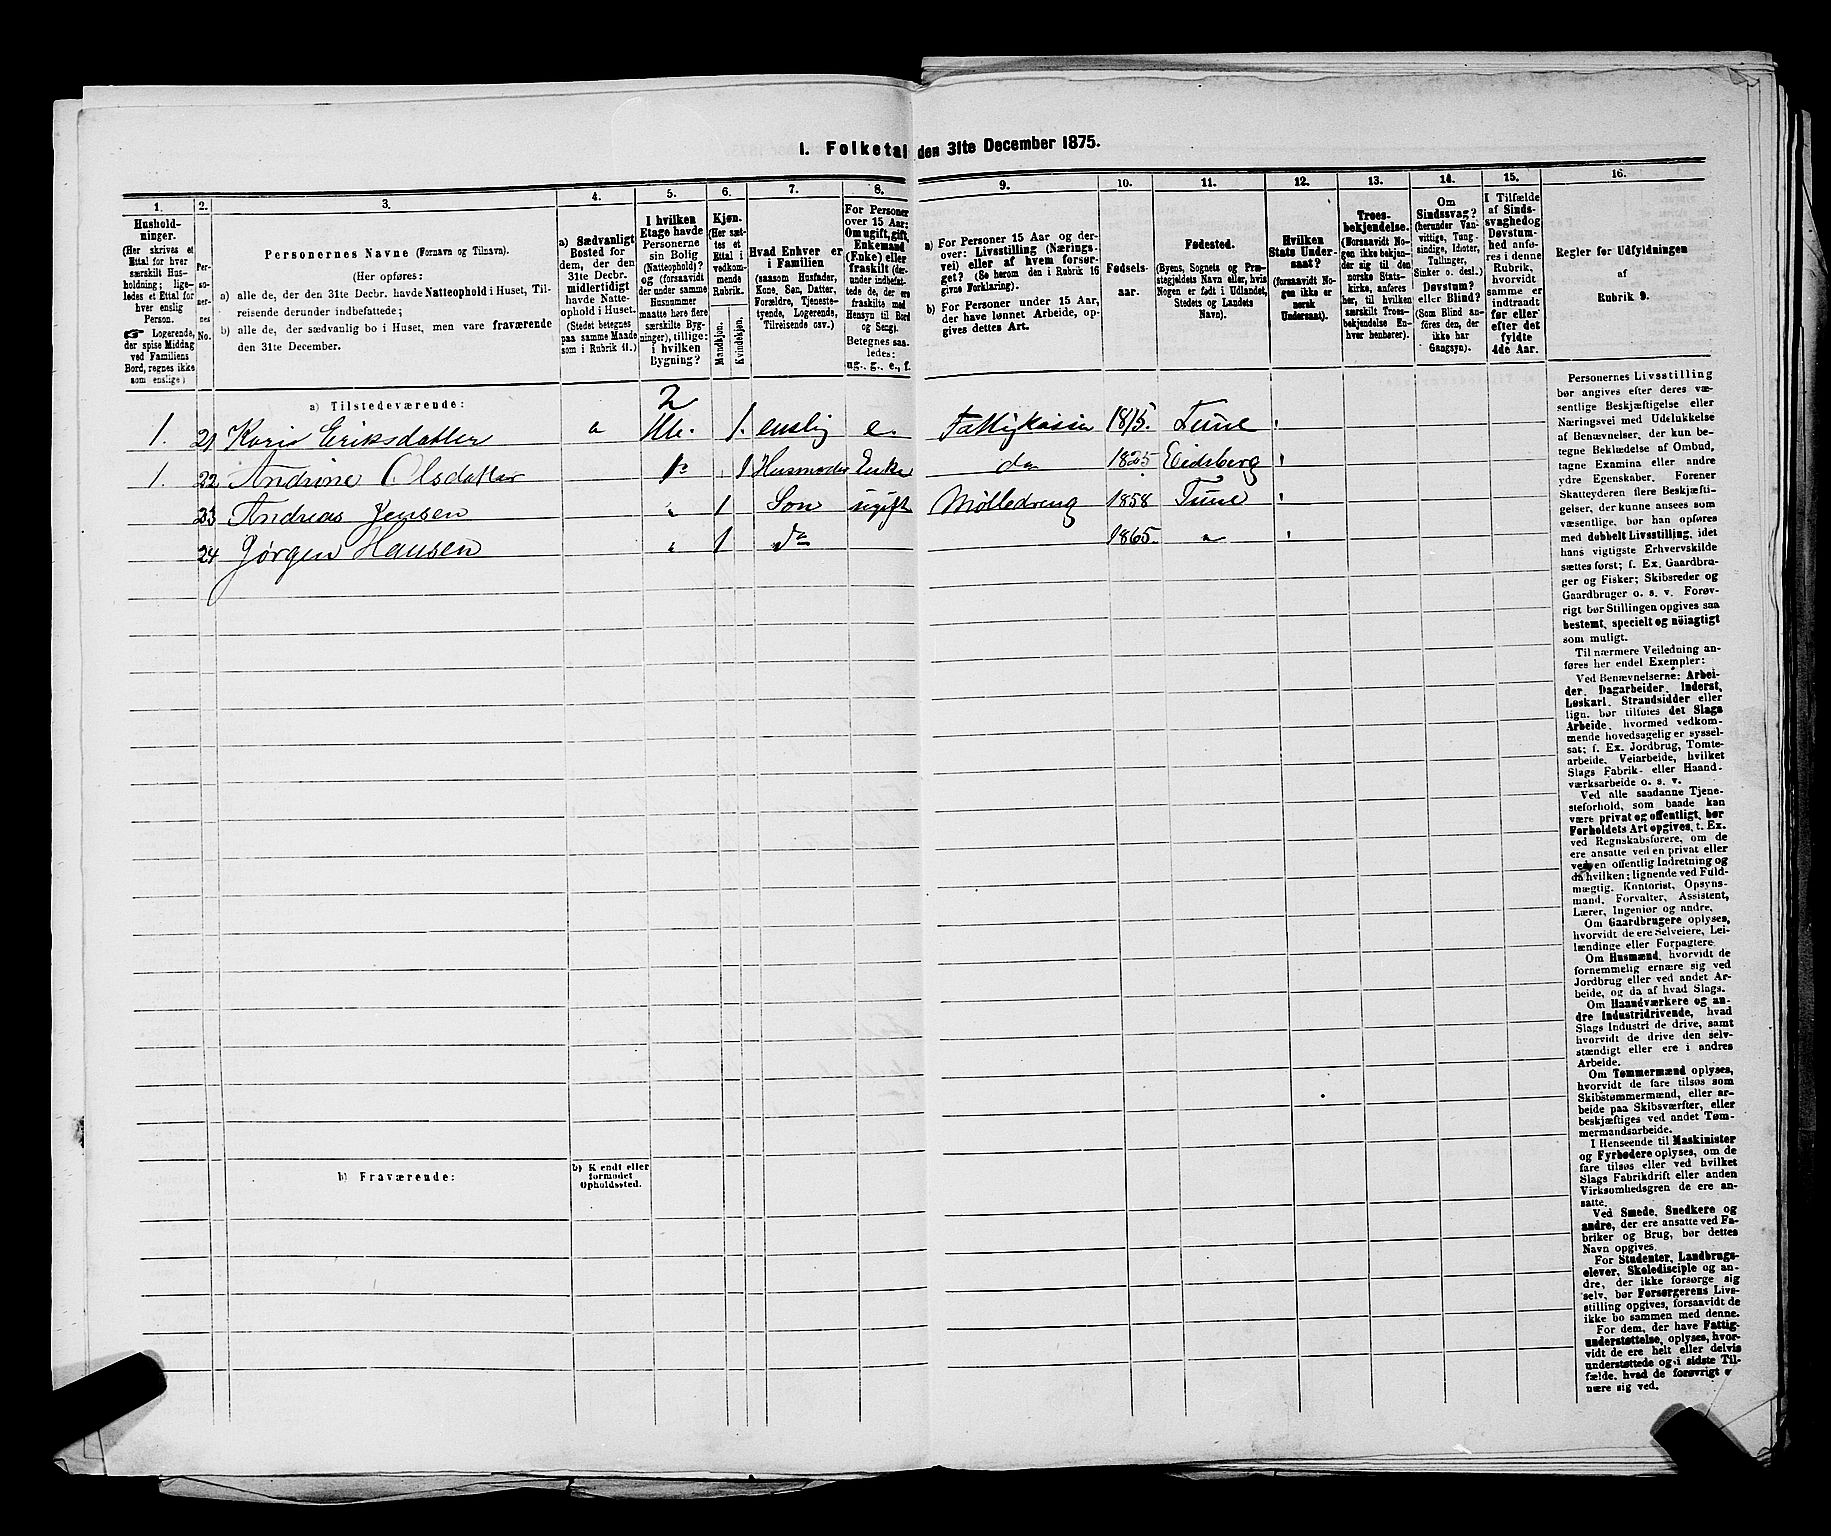 1. Folketal den 31te December 1875.
1.
2.
3.
4.
5.
6.
7.
8.
9.
10.
11.
12.
13.
14.
15.
16.
Hushold-
ninger.
(Her skrives et
Ettal for hver
særskilt Hus-
holdning; lige-
ledes et Ettal for
hver enslig
Person.
☞ Logerende,
der spise Middag
ved Familiens
Bord, regnes ikke
som enslige)
Per-
so-
ner-
nes
No.
Personernes Navne (Fornavn og Tilnavn).
(Her opføres:
a) alle de, der den 31te Decbr. havde Natteophold i Huset, Til-
reisende derunder indbefattede;
b) alle de, der sædvanlig bo i Huset, men vare fraværende
den 31te December.
a) Sædvanligt
Bosted for
dem, der den
31te Decbr.
midlertidigt
havde Natte-
ophold i Huset.
(Stedet betegnes
paa samme Maade
som i Rubrik 11.)
I hvilken
Etage havde
Personerne
sin Bolig
(Natteophold)?
og (forsaavidt
der under samme
Husnummer
maatte høre flere
særskilte Byg-
ninger), tillige:
i hvilken
Bygning?
Kjøn.
(Her sæt-
tes et
Ettal i
vedkom-
mende
Rubrik.
Mandkjøn.
Kvindekjøn.
Hvad Enhver er
i Familien
(saasom Husfader,
Kone, Søn, Datter,
Forældre, Tjeneste-
tyende, Logerende,
Tilreisende osv.)
For Personer
over 15 Aar:
Om ugift, gift,
Enkemand
(Enke) eller
fraskilt (der-
under indbefat-
tede de, der ere
fraskilte med
Hensyn til Bord
og Seng).
Betegnes saa-
ledes:
ug., g., e., f.
a) For Personer 15 Aar og der-
over: Livsstilling (Nærings-
vei) eller af hvem forsør-
get? (Se herom den i Rubrik 16
givne Forklaring).
b) For Personer under 15 Aar,
der have lønnet Arbeide, op-
gives dettes Art.
Fødsels-
aar.
Fødested.
(Byens, Sognets og Præ-
stegjeldets Navn eller, hvis
Nogen er født i Udlandet,
Stedets og Landets
Navn).
Hvilken
Stats Under-
saat?
(forsaavidt No-
gen ikke er
norsk
Undersaat).
Troes-
bekjendelse.
(Forsaavidt No-
gen ikke bekjen-
der sig til den
norske Stats-
kirke, anføres
her, til hvilken
særskilt Troes-
bekjendelse En-
hver henhører).
Om
Sindssvag?
(herunder Van-
vittige, Tung-
sindige, Idioter,
Tullinger,
Sinker o. desl.)
Døvstum?
eller Blind?
(Som Blind an-
føres den, der
ikke har
Gangsyn).
I Tilfælde
af Sinds-
svaghed og
Døvstum-
hed anfø-
res i denne
Rubrik,
hvorvidt
samme er
indtraadt
før eller
efter det
fyldte
4de Aar.
Regler for Udfyldningen
af
Rubrik 9.
a) Tilstedeværende:
2
1. 21 Karis Eriksdatter a 1 enslig e. Fattigkassen 1815. Tune
1. 22 Andrine Olsdatter 1 Husmoder Enke do 1825 Eidsberg
23 Andreas Jensen " 1 Søn ugift Mølledreng 1858 Tune
24 Jørgen Hansen " 1 do 1865. "
b) Fraværende:
b) Kjendt eller
formodet
Opholdssted.
Personernes Livsstilling
bør angives efter deres væ-
sentlige Beskjæftigelse eller
Næringsvei med Udelukkelse
af Benævnelser, der kun be-
tegne Beklædelse af Ombud,
tagne Examina eller andre
ydre Egenskaber. Forener
Skatteyderen flere Beskjæfti-
gelser, der kunne ansees som
væsentlige, bør han opføres
med dobbelt Livsstilling, idet
hans vigtigste Erhvervskilde
sættes først; f. Ex. Gaardbru-
ger og Fisker; Skibsreder og
Gaardbruger o. s. v. Forøv-
rigt bør Stillingen opgives saa
bestemt, specielt og nöiagtigt
som muligt.
Til nærmere Veiledning an-
føres her endel Exempler:
Ved Benævnelserne: Arbei-
der, Dagarbeider, Inderst,
Løskarl, Strandsidder eller
lign. bør tilføies det Slags
Arbeide, hvormed vedkom-
mende hovedsagelig er syssel-
sat; f. Ex. Jordbrug, Tomte-
arbeide, Veiarbeide, hvilket
Slags Fabrik- eller Haand-
værksarbeide o. s. v.
Ved alle saadanne Tjene-
steforhold, som baade kan
være privat og offentligt, bør
Forholdets Art opgives, t. Ex.
ved Regnskabsførere, om de
ere ansatte ved en privat eller
ved en offentlig Indretning og
da hvilken; lignende ved Fuld-
mægtig, Kontorist, Opsyns-
mand, Forvalter, Assistent,
Lærer, Ingeniør og andre.
Om Gaardbrugere oplyses,
hvorvidt de ere Selveiere, Lei-
lændinge eller Forpagtere.
Om Husmænd, hvorvidt de
fornemmelig ernære sig ved
Jordbrug eller ved andet Ar-
beide, og da af hvad Slags.
Om Haandværkere og an-
dre Industridrivende, hvad
Slags Industri de drive, samt
hvorvidt de drive den selv-
stændigt eller ere i andres
Arbeide.
Om Tømmermænd oplyses,
hvorvidt de fare tilsøs som
Skibstømmermænd, eller ar-
beide paa Skibsværfter, eller
beskjæftiges ved andet Tøm-
mermandsarbeide.
I Henseende til Maskinister
og Fyrbødere oplyses, om de
fare tilsøs eller ved hvilket
Slags Fabrikdrift eller anden
Virksomhedsgren de ere an-
satte.
Ved Smede, Snedkere og
andre, der ere ansatte ved Fa-
briker og Brug, bør dettes
Navn opgives.
For Studenter, Landbrugs-
elever, Skoledisciple og an-
dre, der ikke forsørge sig
selv, bør Forsørgerens Livs-
stilling opgives, forsaavidt de
ikke bo sammen med denne.
For dem, der have Fattig-
understøttelse, oplyses, hvor-
vidt de ere helt eller delvis
understøttede og i sidste Til-
fælde, hvad de forøvrigt er-
nære sig ved.